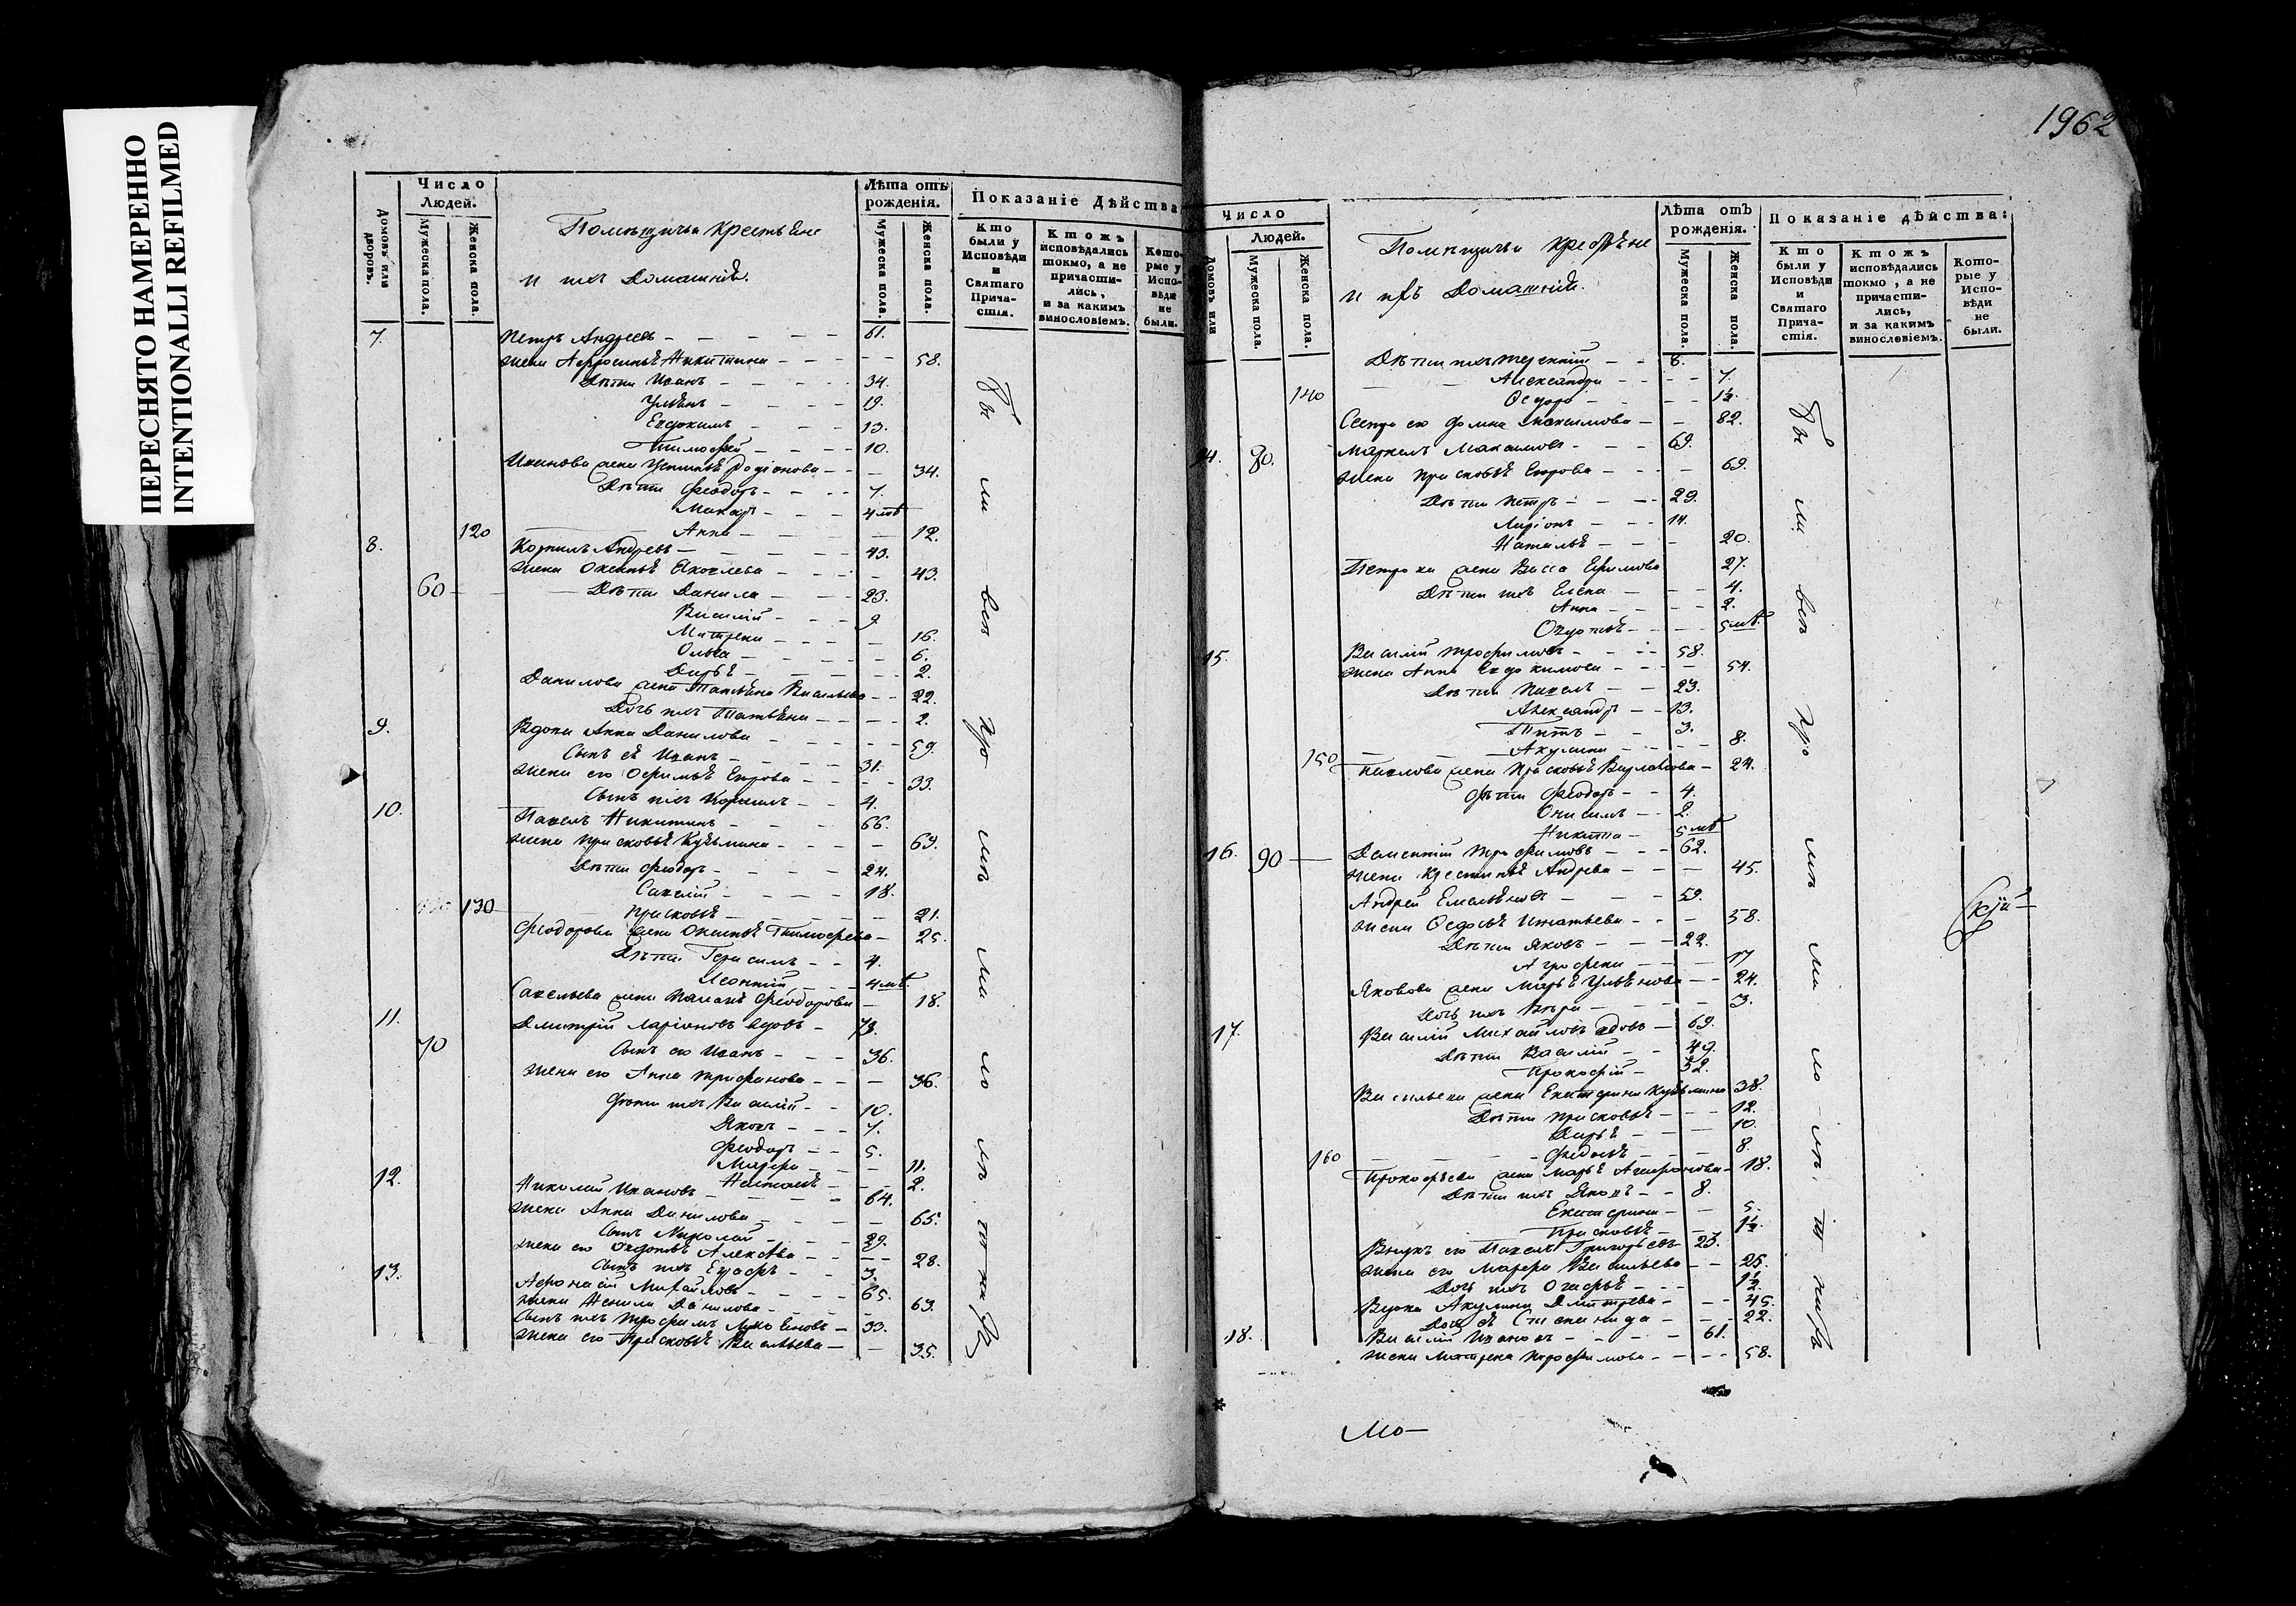 ПЕРЕСНЯТО НАМЕРЕННО
INTENTIONALLI REFILMED
Домовъ или дворовъ.
Число Людей.
Мужеска пола.
Женска пола.
Помѣщичьи крестьяне
и ихъ Домашніе.
Лѣта отъ рожденія.
Мужеска пола.
Женска пола.
Показаніе Дѣйства
Кто были у Исповѣди и Святаго Причастія.
Ктожъ исповѣдались токмо, а не причастились, и за какимъ винословіемъ.
Которые у Исповѣди не были.
7. Петръ Андреевъ — 61.
жена Афросинья Никитина — 58.
Дѣти Иванъ — 34.
Ульянъ — 19.
Евдокимъ — 13.
Тимофей — 10.
Иванова жена Устинья Родіонова — 34.
Дѣти Феодоръ — 7.
Макаръ — 4 мѣ
120 Анна — 12.
8. Корнилъ Андреевъ — 43.
жена Оксинья Яковлева — 43.
60 Дѣти Данила — 23.
Василій — 9
Матрена — 16.
Ольга — 6.
Дарья — 2.
Данилова жена Татьяна Васильева — 22.
Дочь ихъ Татьяна — 2.
9. Вдова Анна Данилова — 59.
Сынъ её Иванъ — 31.
жена его Офимья Егорова — 33.
Сынъ ихъ Корнилъ — 4.
10. Павелъ Никитинъ — 66.
жена Прасковья Кузьмина — 69.
Дѣти Феодоръ — 24.
Савелій — 18.
130 Прасковья — 21.
Феодорова жена Оксинья Тимофеева — 25.
Дѣти Герасимъ — 4.
Леонтій — 4 мѣ.
Савельева жена Феодорова — 18.
11. Дмитрій Ларіоновъ вдовъ — 73.
70 Сынъ его Иванъ — 36.
жена его Анна Трифонова — 36.
Дѣти ихъ Василій — 10.
Яковъ — 7.
Феодоръ — 5.
Марфа — 11.
Наталья — 2.
12. Николай Ивановъ — 64.
жена Анна Данилова — 65.
Сынъ Николай — 29.
жена его Овдотья Алексѣева — 28.
Сынъ ихъ Евграфъ — 3.
13. Афонасій Михайловъ — 65.
жена Ненила Данилова — 63.
Сынъ ихъ Трофимъ — 33.
жена его Прасковья Васильева — 35.
1962
Домовъ или
Число Людей.
Мужеска пола.
Женска пола.
Помѣщичьи крестьяне
и ихъ Домашніе.
Лѣта отъ рожденія.
Мужеска пола.
Женска пола.
Показаніе дѣйства:
Кто были у Исповѣди и Святаго Причастія.
Ктожъ исповѣдались токмо, а не причастились, и за какимъ винословіемъ.
Которые у Исповѣди не были.
Дѣти ихъ Терентій — 8.
Александра — 7.
140 — 1½.
Сестра его Домна Максимова — 82.
14. 80. Маркелъ Максимовъ — 69.
жена Прасковья Егорова — 69.
Дѣти Петръ — 29.
Ларіонъ — 14.
Наталья — 20.
Петрова жена Васса Ефимова 27.
Дѣти ихъ Елена — 4.
Анна — 2.
Овдотья — 5 мѣ.
15. Василій Трофимовъ — 58.
жена Анна Евдокимова — 54.
Дѣти Павелъ — 23.
Александръ — 13.
Титъ — 3.
Акулина — 8.
150 Павлова жена Прасковья Варламова — 24.
Дѣти Феодоръ — 4.
Онисимъ — 2.
Никита — 5 мѣ
16. 90 Дементій Трофимовъ — 62.
жена Крестинья Андреева — 45.
Андрей Емельяновъ — 59.
жена Федосья Игнатьева — 58.
Дѣти Яковъ — 22.
Агрофена — 17
Яковова жена Марья Ульянова — 24.
Дочь ихъ Вѣра — 3.
17. Василій Михайловъ вдовъ — 69.
Дѣти Василій — 49.
Прокофій — 32.
Васильева жена Екатерина Кузьмина 38.
Дѣти Прасковья — 12.
Дарья — 10.
160 Федосья — 8.
Прокофьева жена Марья — 18.
Дѣти ихъ Яковъ — 8.
Екатерина — 5.
Прасковья — 1½.
Внукъ его Павелъ Григорьевъ 23.
жена его Марфа Васильева — 25.
Дочь ихъ — 1½.
Вдова Акулина Дмитрева — 45.
Дочь её Степанида — 22.
18. Василій Ивановъ — 61.
жена Матрена Трофимова — 58.
Мо—